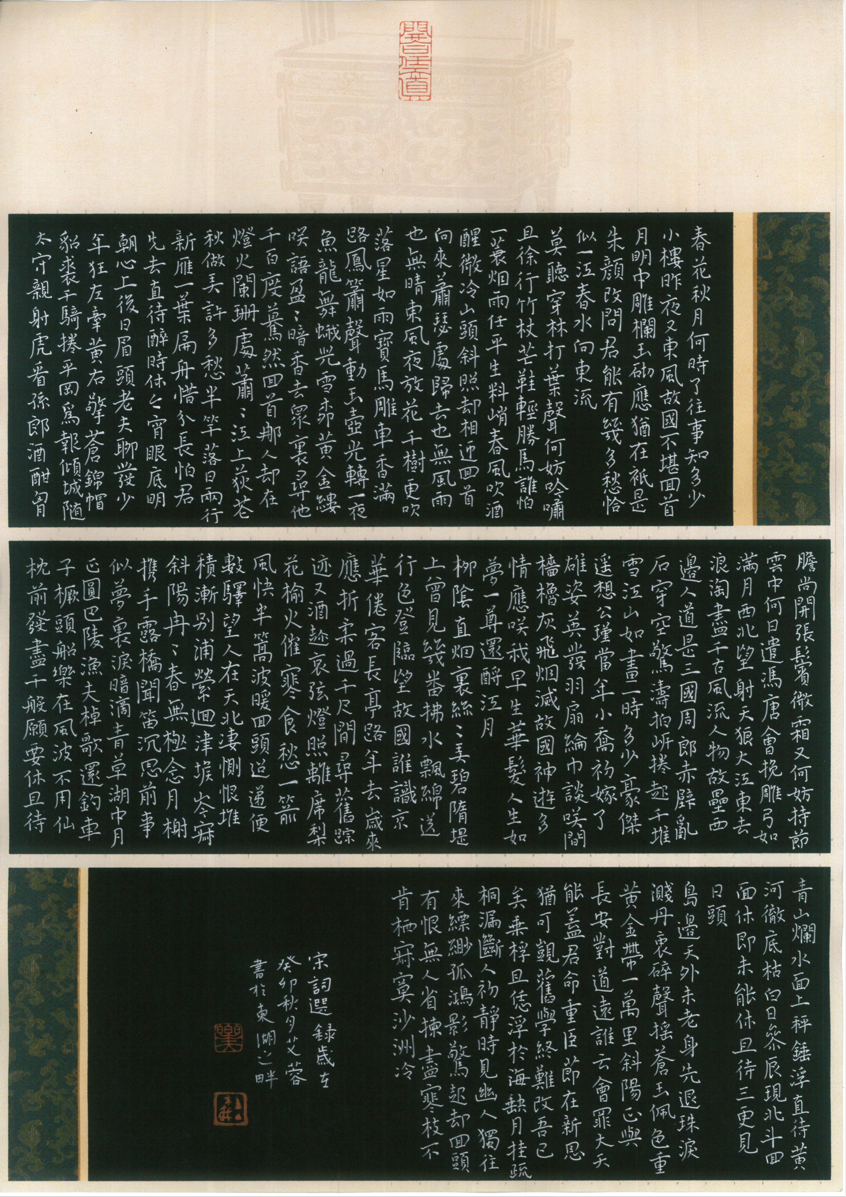 開合任真
春花秋月何時了往事知多少
小樓昨夜又東風故國不堪回首
月明中雕欄玉砌應猶在祇是
朱顏改問君能有幾多愁恰
似一江春水向東流
莫聽穿林打葉聲何妨吟嘯
且徐行竹杖芒鞋輕勝馬誰怕
一蓑烟雨任平生料峭春風吹酒
醒微冷山頭斜照却相迎回首
向來蕭瑟處歸去也無風雨
也無晴東風夜放花千樹更吹
落星如雨寶馬雕車香滿
路鳳簫聲動玉壺光轉一夜
魚龍舞蛾兒雪柳黃金縷
咲語盈〻暗香去衆裏尋他
千百度驀然回首那人却在
燈火闌珊處蕭〻江上荻花
秋做弄許多愁半竿落日兩行
新雁一葉扁舟惜分長怕君
先去直待醉時休今宵眼底明
朝心上後日眉頭老夫聊發少
年狂左牽黃右擎蒼錦帽
貂裘千騎捲平岡爲報傾城隨
太守親射虎看孫郎酒酣胸
膽尚開張鬢微霜又何妨持節
雲中何日遣馮唐會挽雕弓如
滿月西北望射天狼大江東去
浪淘盡千古風流人物故壘西
邊人道是三國周郎赤壁亂
石穿空驚濤拍岍捲起千堆
雪江山如畫一時多少豪傑
遥想公瑾當年小喬初嫁了
雄姿英發羽扇綸巾談咲間
檣櫓灰飛烟滅故國神遊多
情應咲我早生華髮人生如
夢一尊還酹江月
柳陰直烟裏絲〻弄碧隋堤
上曾見幾番拂水飄綿送
行色登臨望故國誰識京
華倦客長亭路年去歲來
應折柔過千尺閒尋舊踪
迹又酒趁哀弦燈照離席梨
花榆火催寒食愁一箭
風快半篙波暖回頭迢遞便
數驛望人在天北淒惻恨堆
積漸别浦縈迴津堠岑寂
斜陽冉〻春無極念月榭
携手露橋聞笛沉思前事
似夢裏淚暗滴青草湖中月
正圓巴陵漁夫棹歌還釣車
子橛頭船樂在風波不用仙
枕前發盡千般願要休且待
青山爛水面上秤錘浮直待黃
河徹底枯白日參辰現北斗回
面休即未能休且待三更見
日頭
島邊天外未老身先退珠淚
濺丹衷碎聲搖蒼玉佩色重
黃金帶一萬里斜陽正與
長安對道遠誰云會罪大天
能蓋君命重臣節在新恩
猶可覬舊學終難改吾已
矣乘桴且恁浮於海缺月挂疏
桐漏斷人初靜時見幽人獨往
來縹緲孤鴻影驚起却回頭
有恨無人省揀盡寒枝不
肯栖寂寞沙洲冷
宋詞選録歲在
癸卯秋月艾蓉
書於東湖之畔